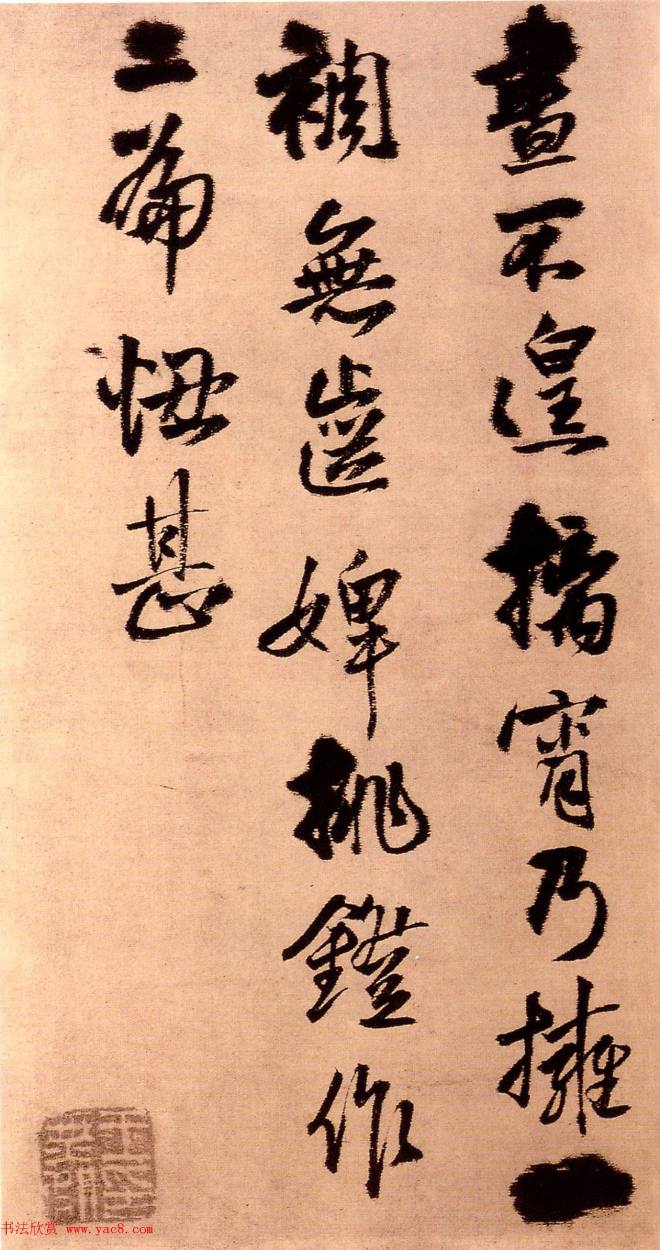 晝不遑摛宵乃擁一
裯無齒婢挑鐙作
二篇甚
书法欣赏 www.yac8.com